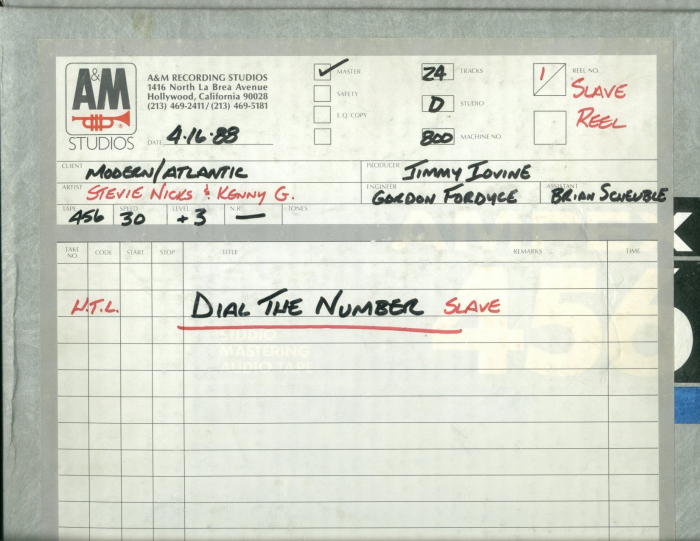 A&M
STUDIOS
A&M RECORDING STUDIOS
1416 North La Brea Avenue
Hollywood, California 90028
(213) 469-2411/(213) 469-5181
DATE 4·16·88
MASTER
SAFETY
E.Q. COPY
24 TRACKS
D STUDIO
800 MACHINE NO.
1 REEL NO.
SLAVE
REEL
CLIENT MODERN/ATLANTIC
PRODUCER JIMMY IOVINE
ARTIST STEVIE NICKS & KENNY G.
ENGINEER GORDON FORDYCE
ASSISTANT BRIAN SCHEUBLE
TAPE 456 SPEED 30 LEVEL +3 N.R. — TONES
TAKE NO. CODE START STOP TITLE REMARKS TIME
N.T.L. DIAL THE NUMBER SLAVE
AMPEX
456
STUDIO
MASTERING
AUDIO TAPE